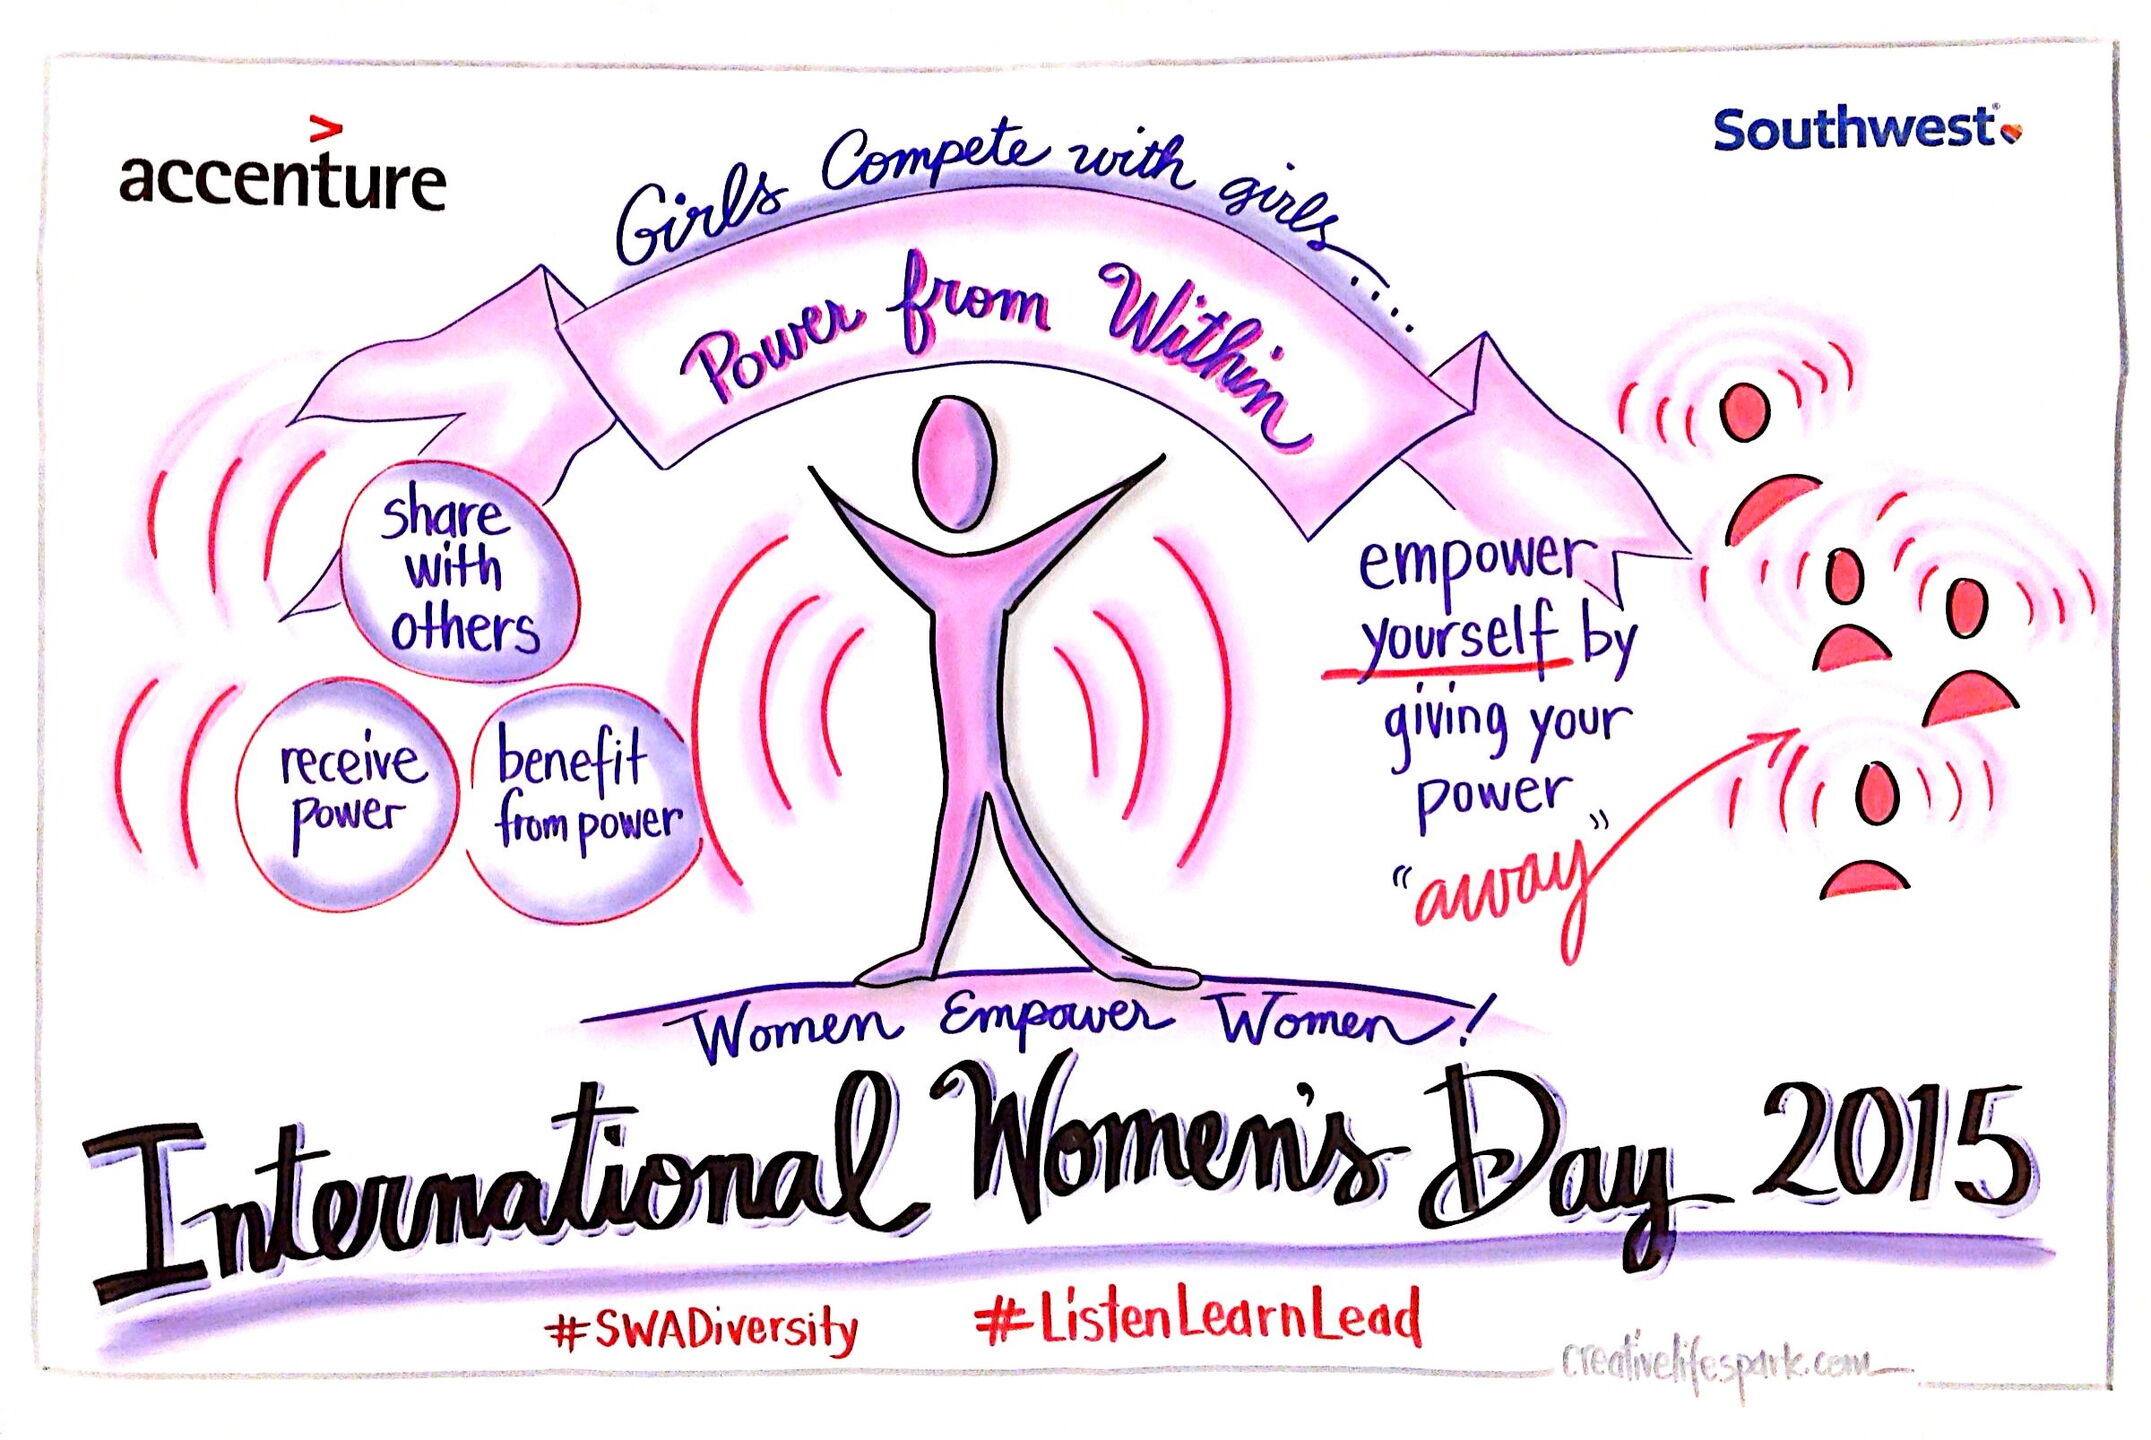 accenture
Southwest
Girls Compete with girls....
Power from Within
share
with
others
receive
power
benefit
from power
empower
yourself by
giving your
power
"away"
Women Empower Women!
International Women's Day 2015
#SWADiversity
#ListenLearnLead
creativelifespark.com